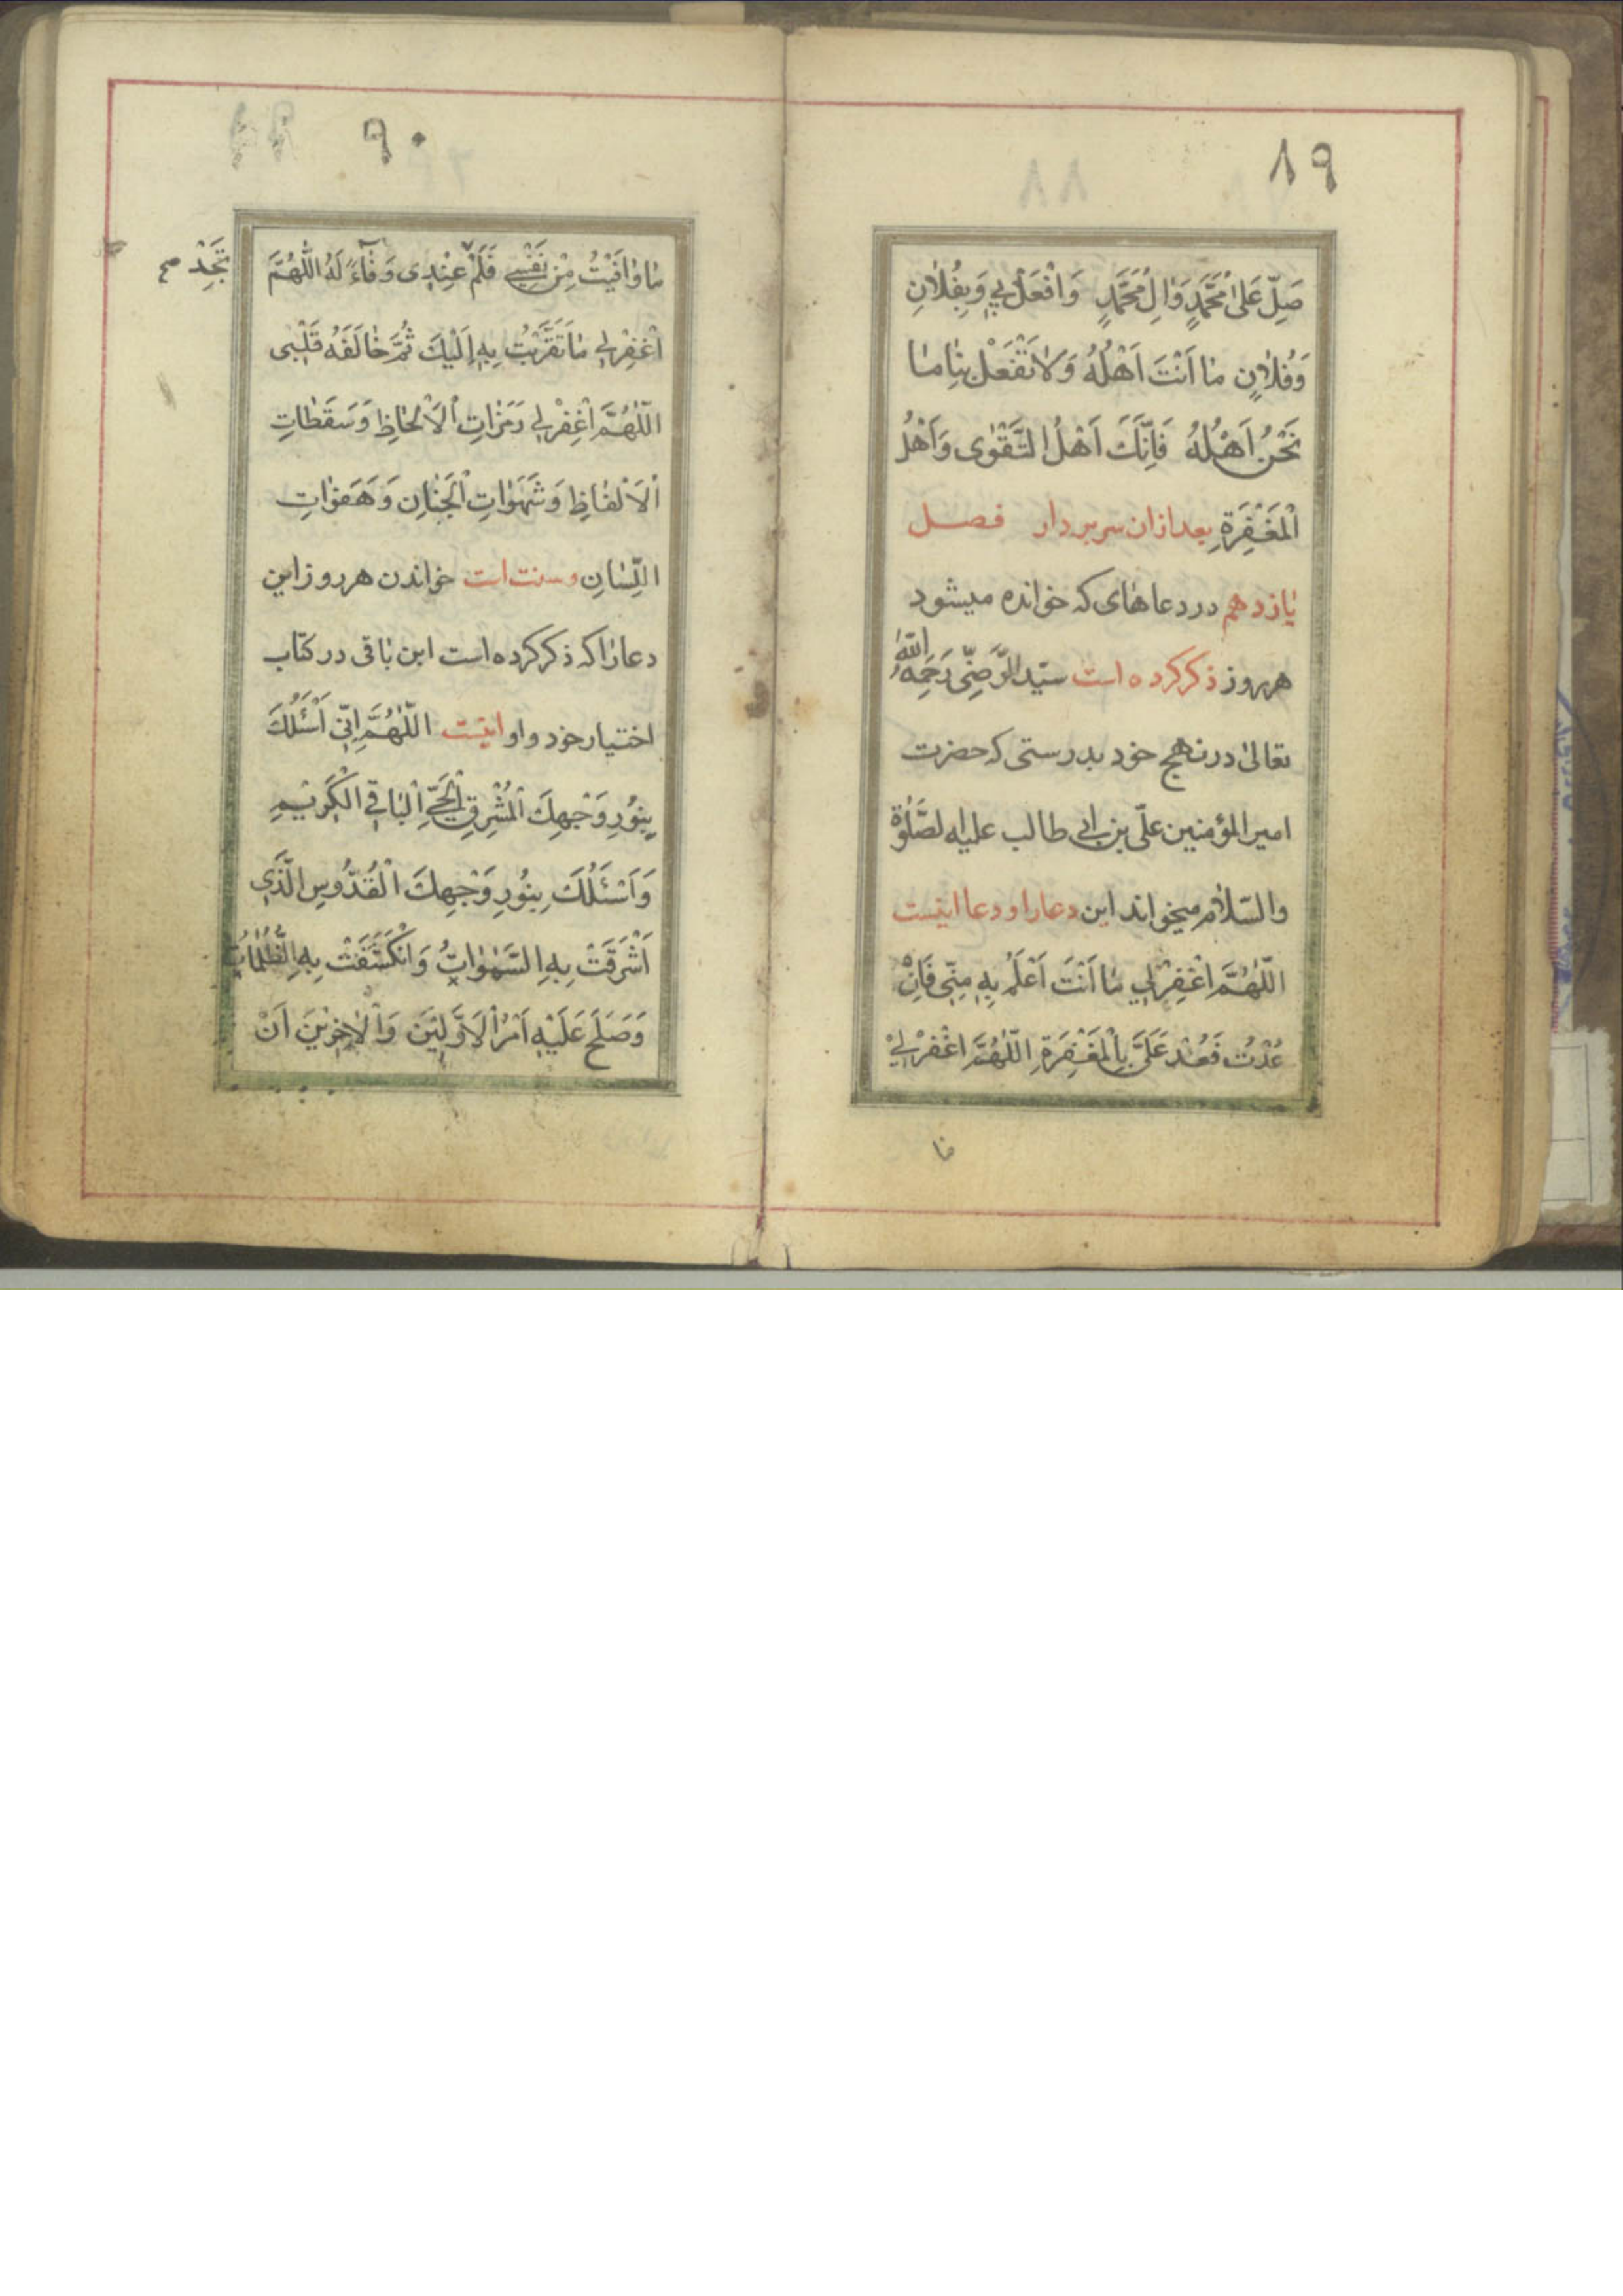 ٨٩
صَلِّ عَلىٰ مُحَمَّدٍ وَاٰلِ مُحَمَّدٍ وَافْعَلْ بِي وَبِفُلاٰنِ
وَفُلاٰنٍ مٰا اَنْتَ اَهْلُهُ وَلاٰ تَفْعَلْ بِنٰا مٰا
نَحْنُ اَهْلُهُ فَاِنَّكَ اَهْلُ التَّقْوٰى وَاَهْلُ
الْمَغْفِرَةِ بعد ازان سر بردار فصل
یازدهم در دعاهای که خوانده میشود
هر روز ذکر کرده است سیّد الرَّضِیّ رَحِمَهُ اللّٰهُ
تعالیٰ در نهج خود بدرستی که حضرت
امیرالمؤمنین علّی بن ابی طالب علیه الصَّلٰوة
والسّلام میخواند این دعا را و دعا اینست
اَللّٰهُمَّ اغْفِرْ لِي مٰا اَنْتَ اَعْلَمُ بِهِ مِنّی فَاِنْ
عُدْتُ فَعُدْ عَلَيَّ بِالْمَغْفِرَةِ اَللّٰهُمَّ اغْفِرْ لِيْ
مٰا
٩٠
مٰا وَاَيْتُ مِنْ نَفْسِي فَلَمْ عِنْدِی وَفٰاءً لَهُ اَللّٰهُمَّ
تَجِدْ صح
اغْفِرْ لِي مٰا تَقَرَّبْتُ بِهِ اِلَيْكَ ثُمَّ خٰالَفَهُ قَلْبِی
اَللّٰهُمَّ اغْفِرْ لِي رَمَزٰاتِ الْاَلْحٰاظِ وَسَقَطٰاتِ
الْاَلْفٰاظِ وَشَهَوٰاتِ الْجَنٰانِ وَهَفَوٰاتِ
اللِّسٰانِ و سنت است خواندن هر روز این
دعا را که ذکر کرده است ابن باقی در کتاب
اختیار خود و او اینست اَللّٰهُمَّ اِنّی اَسْئَلُكَ
بِنُورِ وَجْهِكَ الْمُشْرِقِ الْحَيِّ الْبٰاقِي الْكَرِيْمِ
وَاَسْئَلُكَ بِنُورِ وَجْهِكَ الْقُدُّوسِ الَّذِي
اَشْرَقَتْ بِهِ السَّمٰوٰاتُ وَانْكَشَفَتْ بِهِ الظُّلُمٰاتُ
وَصَلَحَ عَلَيْهِ اَمْرُ الْاَوَّلِيْنَ وَالْاٰخِرِيْنَ اَنْ